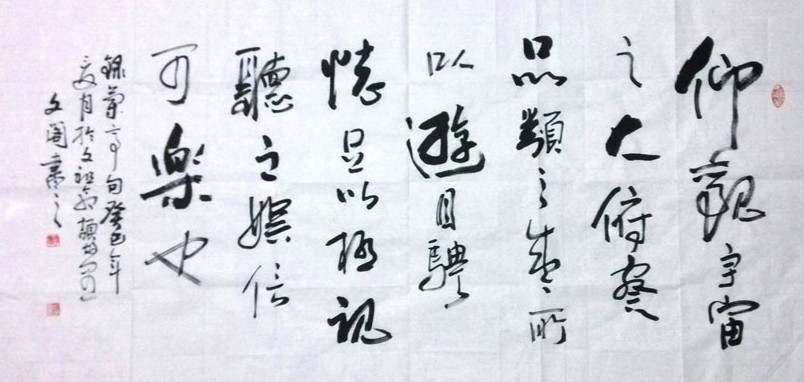 仰觀宇宙
之大俯察
品類之盛所
以遊目騁
懷足以極視
聽之娛信
可樂也
錄蘭亭句癸巳年
夏月於文祖
文閣書之